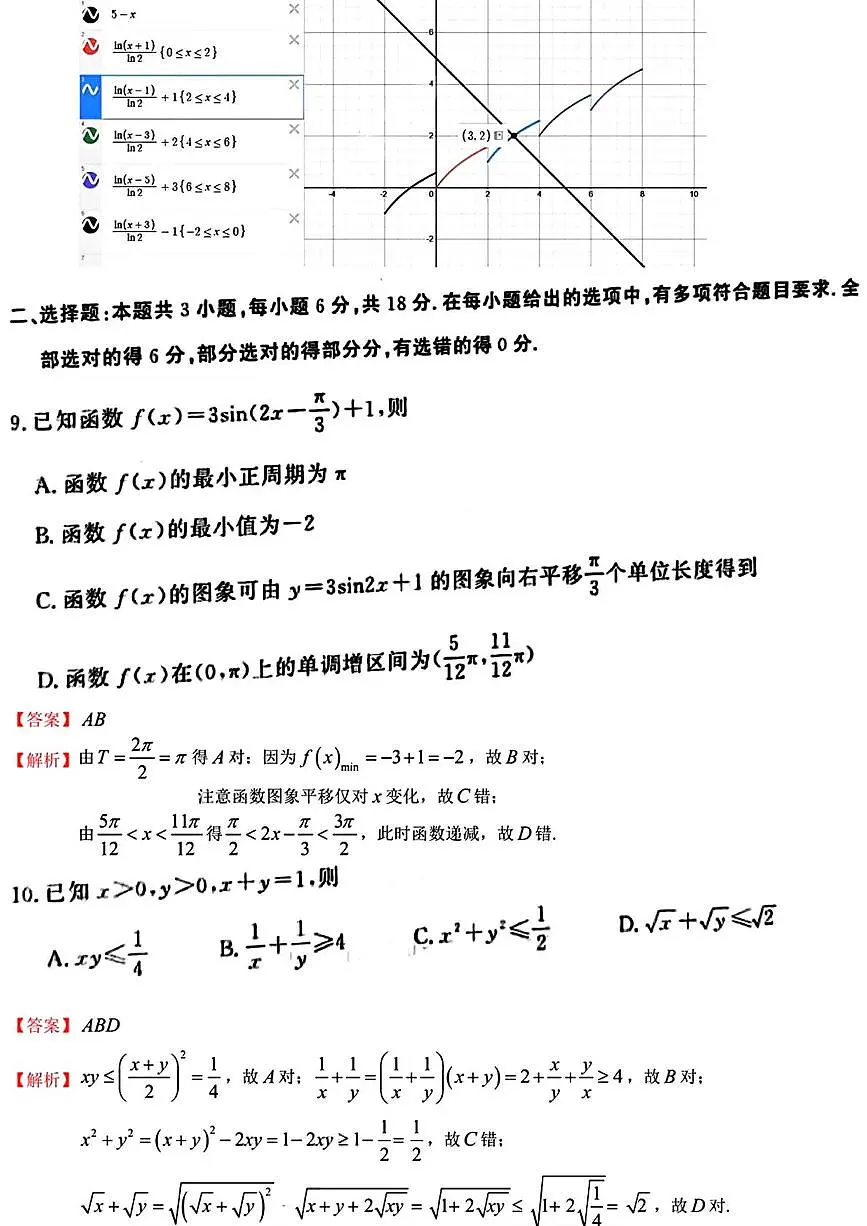 1
5-x
2
ln(x+1)/ln2 {0≤x≤2}
3
ln(x-1)/ln2 +1{2≤x≤4}
4
ln(x-3)/ln2 +2{4≤x≤6}
5
ln(x-5)/ln2 +3{6≤x≤8}
6
ln(x+3)/ln2 -1{-2≤x≤0}
7
6
4
2
(3,2)
-4 -2 0 2 4 6 8 10
-2
二、选择题:本题共 3 小题,每小题 6 分,共 18 分.在每小题给出的选项中,有多项符合题目要求.全
部选对的得 6 分,部分选对的得部分分,有选错的得 0 分.
9.已知函数 f(x)=3sin(2x-π/3)+1,则
A.函数 f(x)的最小正周期为 π
B.函数 f(x)的最小值为-2
C.函数 f(x)的图象可由 y=3sin2x+1 的图象向右平移π/3个单位长度得到
D.函数 f(x)在(0,π)上的单调增区间为(5/12π,11/12π)
【答案】AB
【解析】由T=2π/2=π得A对;因为f(x)min=-3+1=-2,故B对;
注意函数图象平移仅对x变化,故C错;
由5π/12<x<11π/12得π/2<2x-π/3<3π/2,此时函数递减,故D错.
10.已知 x>0,y>0,x+y=1,则
A.xy≤1/4 B.1/x+1/y≥4 C.x²+y²≤1/2 D.√x+√y≤√2
【答案】ABD
【解析】xy≤((x+y)/2)²=1/4,故A对;1/x+1/y=(1/x+1/y)(x+y)=2+x/y+y/x≥4,故B对;
x²+y²=(x+y)²-2xy=1-2xy≥1-1/2=1/2,故C错;
√x+√y=√((√x+√y)²) √(x+y+2√xy)=√(1+2√xy)≤√(1+2√(1/4))=√2,故D对.